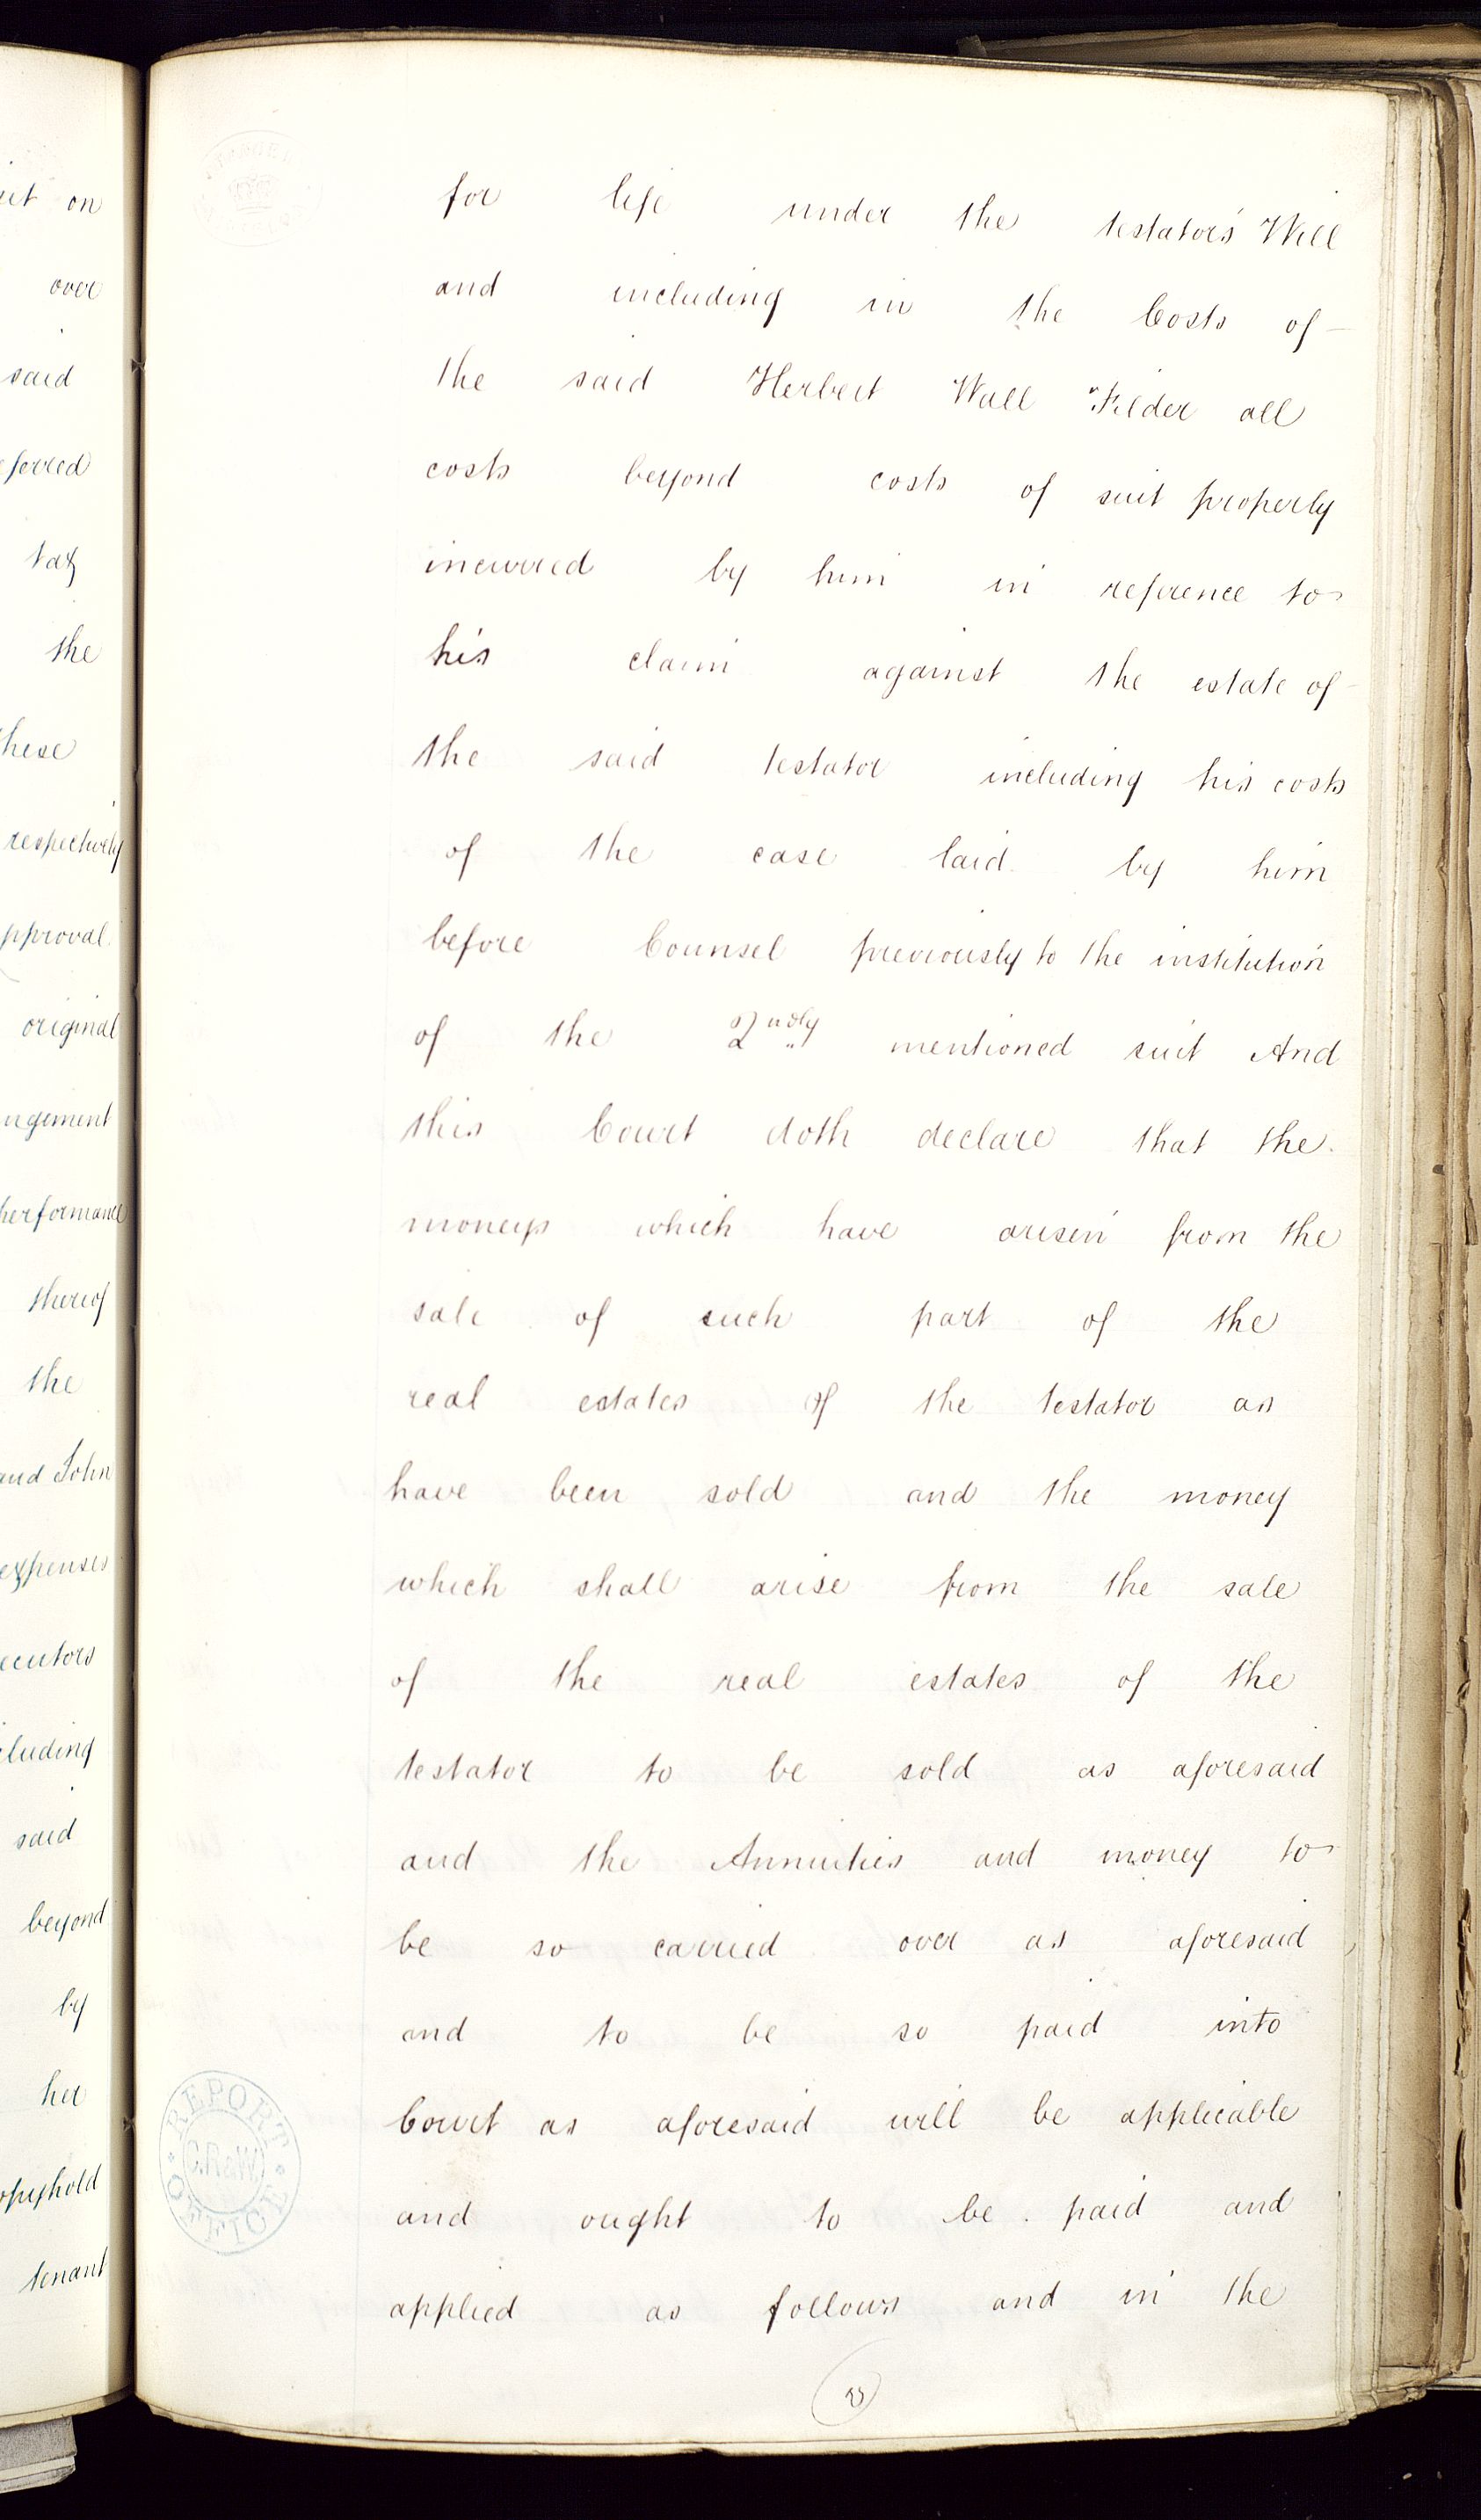 for life under the testator's Will
and including in the Costs of
the said Herbert Wall Filder all
costs beyond costs of suit properly
incurred by him in reference to
his claim against the estate of
the said testator including his costs
of the case laid by him
before Counsel previously to the institution
of the 2ndly mentioned suit And
this Court doth declare that the
moneys which have arisen from the
sale of such part of the
real estates of the testator as
have been sold and the money
which shall arise from the sale
of the real estates of the
testator to be sold as aforesaid
and the Annuities and money to
be so carried over as aforesaid
and to be so paid into
Court as aforesaid will be applicable
and ought to be paid and
applied as follows and in the
on
over
said
tax
the
these
respectively
original
performance
thereof
the
and John
expenses
said
beyond
by
her
tenant
REPORT OFFICE
C.R&W